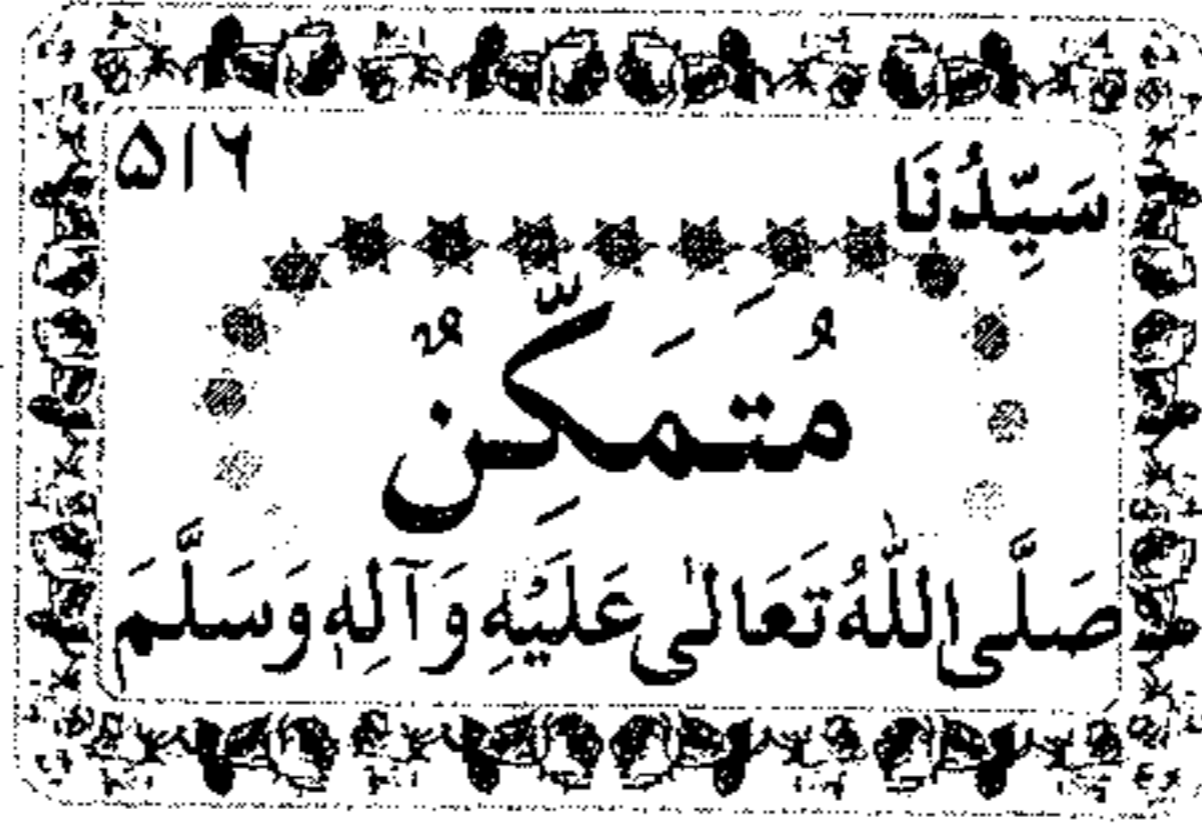 سَيِّدُنَا
۵۱۶
مُتَمَكِّنٌ
صَلَّى اللّٰهُ تَعَالٰى عَلَيْهِ وَآلِهٖ وَسَلَّمَ